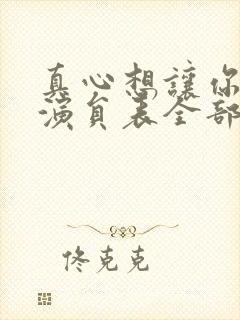 真心想讓你
演員表全部
佟克克